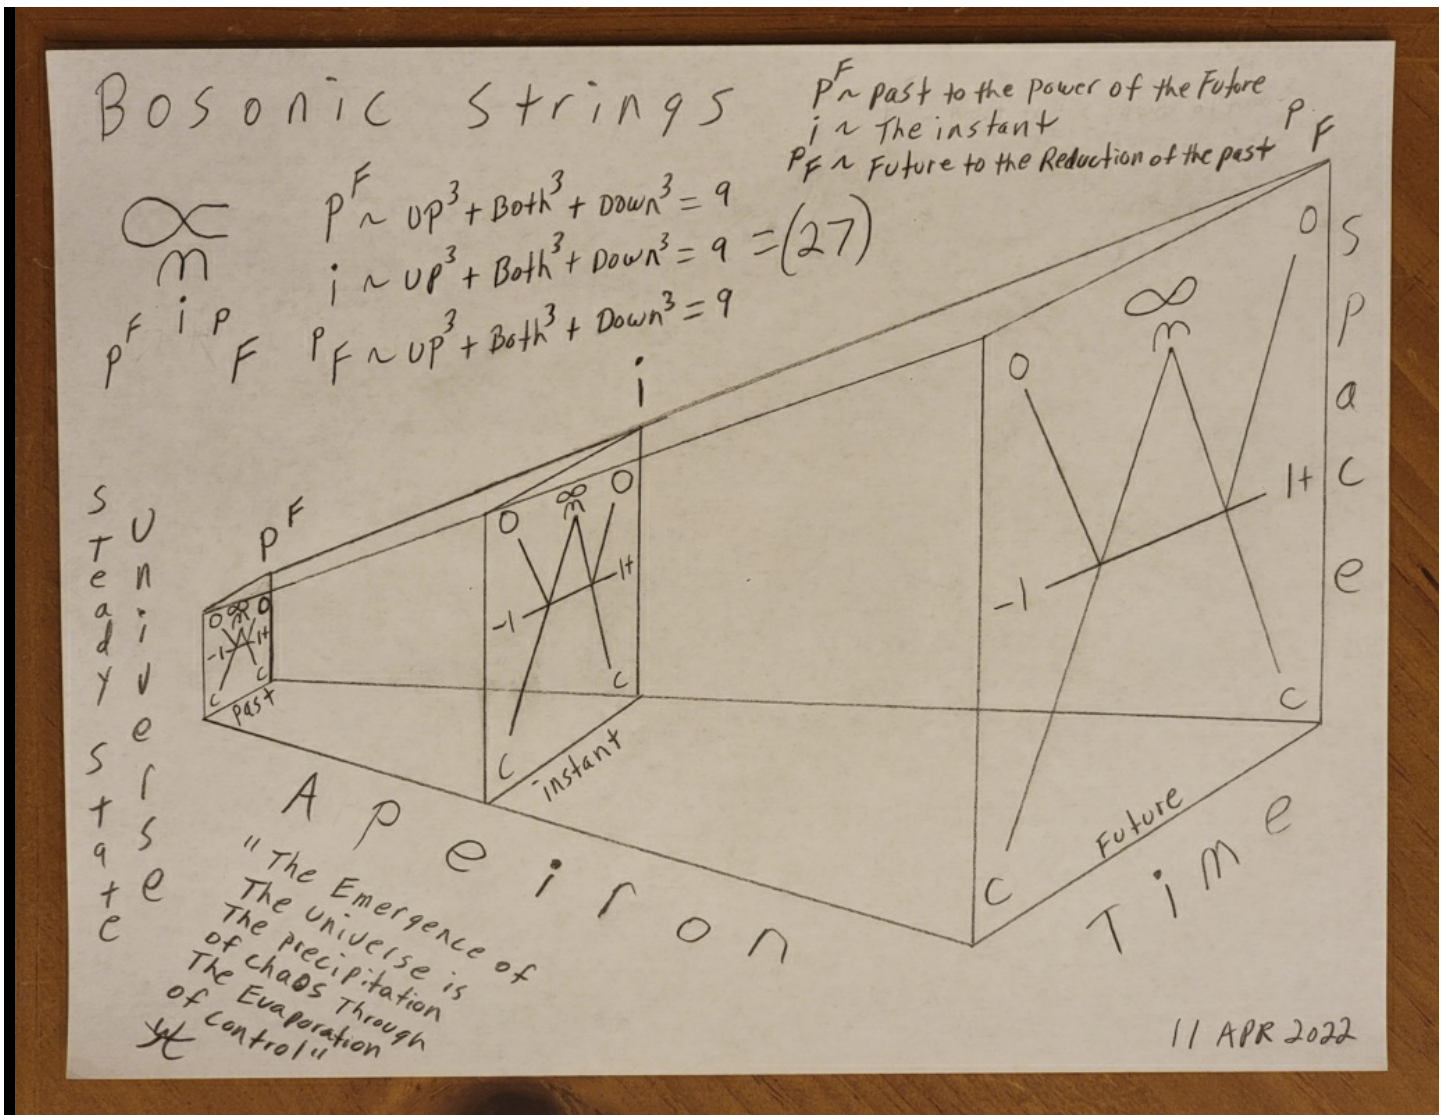 Bosonic Strings
P^F ~ Past to the Power of the Future
i ~ The instant
P_F ~ Future to the Reduction of the past
∝
m
P^F i P_F
P^F ~ UP³ + Both³ + Down³ = 9
i ~ UP³ + Both³ + Down³ = 9 = (27)
P_F ~ UP³ + Both³ + Down³ = 9
P^F
i
P_F
O ∞ O
m
-1 1+
C C
Past
O ∞ O
m
-1 1+
C C
instant
O ∞ O
m
-1 1+
C C
Future
Space
Time
Apeiron
Steady State
Universe
"The Emergence of
The universe is
The precipitation
of chaos Through
The Evaporation
of control"
11 APR 2022